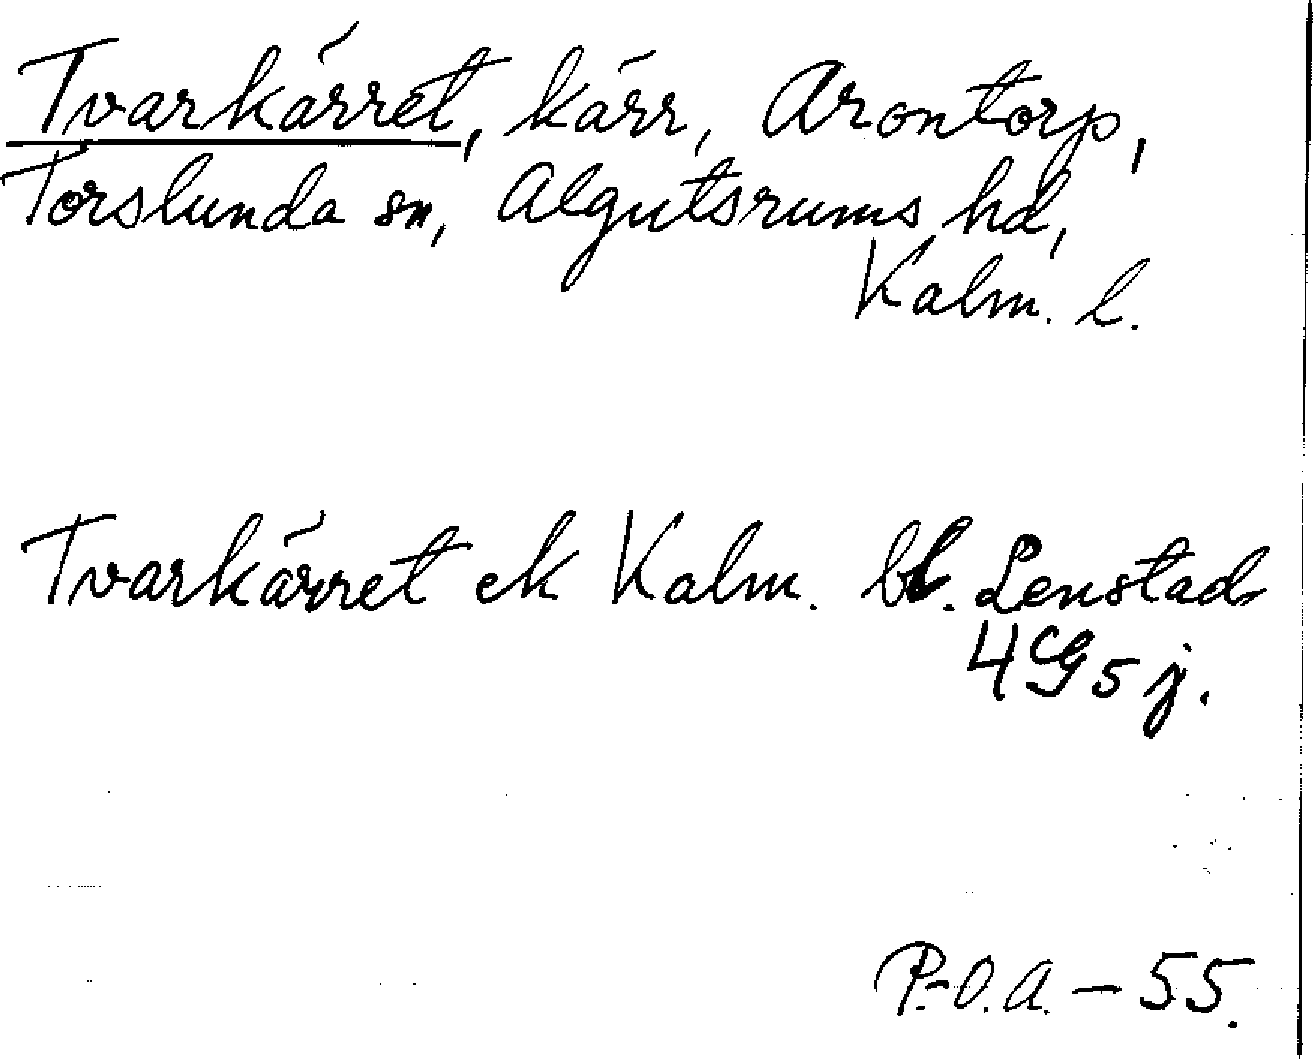 Tvarkärret, kärr, Arontorp,
Torslunda sn, Algutsrums hd,
Kalm. l.
Tvarkärret ek Kalm. bl. Lenstad
4G5j.
P.-O.A. – 55.